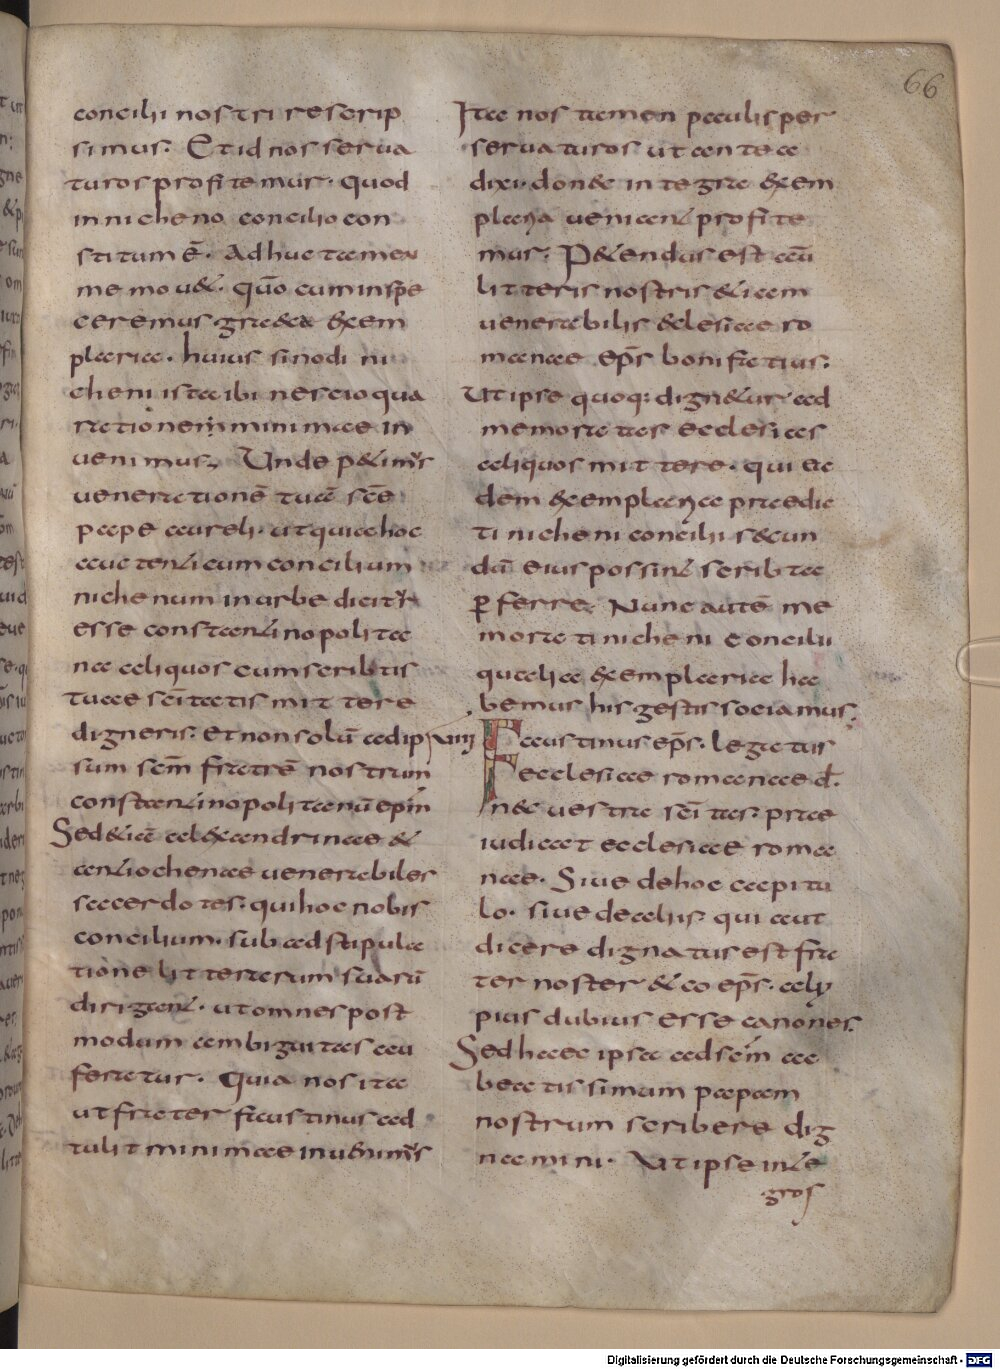 66
concilii nostri rescrip
simus. Et id nos serua
turos profitemur. quod
in nicheno concilio con
stitum ē. Adhuc tamen
me mou&. quō cum inspe
ceremus. greca exem
plaria. huius sinodi ni
cheni ista ibi nescio qua
ratione minimae in
uenimus. Unde p&im's
uenerationē tuā scē
pape aureli. ut quia hoc
acutenti cum concilium
nichenum in urbe dicit'r
esse constantinopolita
na aliquos cum scribtis
tuae sci tatis mittere
digneris. Et non solū ad ip
sum scm̄ fratrē nostrum
constantinopolitanū epm̄
Sed & iā alexandrinae &
antiochenae uenerabiles
sacerdotes. qui hoc nobis
concilium. sub adstipula
tione litterarum suarū
dirigant. ut omnes post
modum ambiguitas au
feratur. Quia nos ita
ut frater faustinus ad
tulit minimae inuenim's
Ita nos tamen paulisper
seruaturos ut antea
dixi. donec integra exem
plaria ueniant profite
mur. P&endus est aū
litteris nostris & iam
uenerabilis eclesiae ro
manae ep̄s bonifatius.
Ut ipse quoq; dign&ur ad
memoratas ecclesias
aliquos mittere. qui ea
dem exemplaria praedic
ti nicheni concilii secun
dū eius possint scribta
ꝑferre. Nunc autē me
morati nicheni concilii
qualia exemplaria ha
bemus his gestis sociamus.
XIIII Faustinus ep̄s. legatus
ecclesiae romanae d.
nec uestra sci tas. prae
iudicat ecclesiae roma
nae. Siue de hoc capitu
lo. siue de aliis. qui aut
dicere dignatus est fra
ter noster & co ep̄s. aly
pius dubius esse canones.
Sed haec ipsa ad scm̄ ac
beatissimum papam
nostrum scribere dig
namini. Ut ipse inte
gros
Digitalisierung gefördert durch die Deutsche Forschungsgemeinschaft - DFG